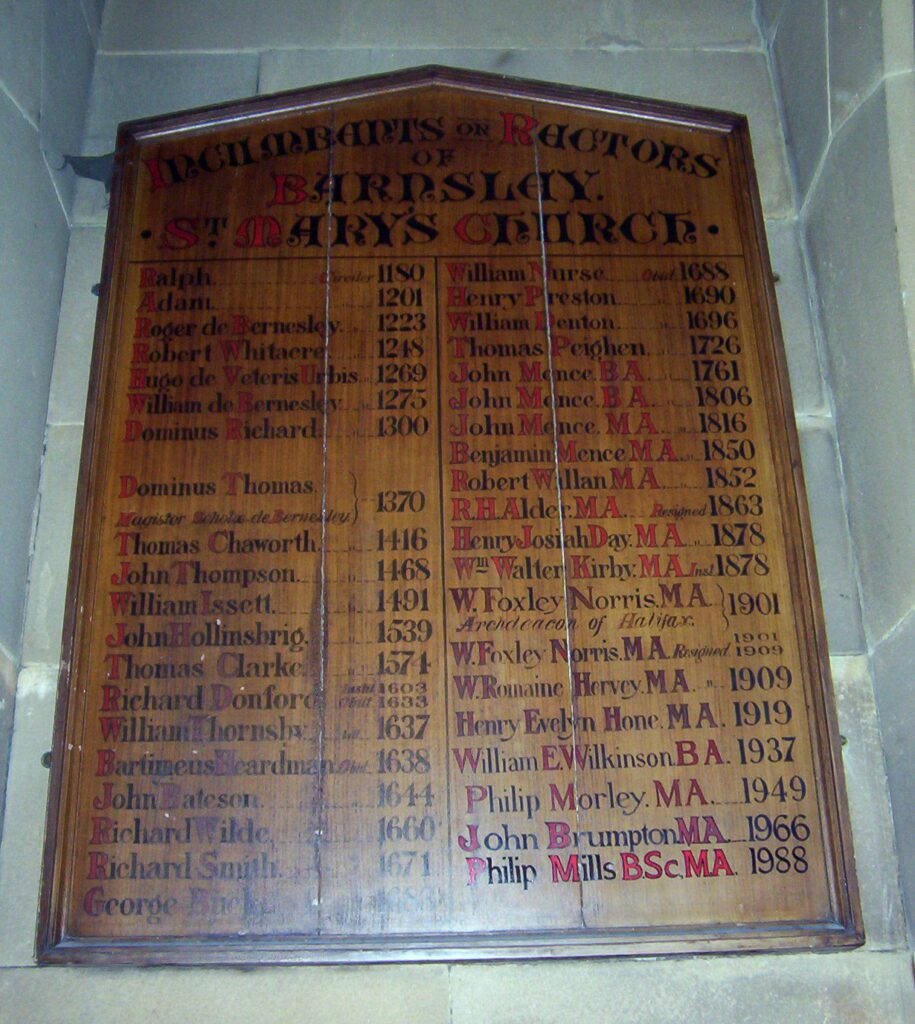 INCUMBENTS OR RECTORS
OF
BARNSLEY.
• ST MARY'S CHURCH •
Ralph. Circiter 1180
Adam. 1201
Roger de Bernesley. 1223
Robert Whitacre. 1248
Hugo de Veteris Urbis. 1269
William de Bernesley. 1275
Dominus Richard. 1300
Dominus Thomas. 1370
Magister Scholæ de Bernesley
Thomas Chaworth. 1416
John Thompson. 1468
William Issett. 1491
John Hollinsbrig. 1539
Thomas Clarke. 1574
Richard Donford Instd 1603
Obiit 1633
William Thornsby. 1637
Bartimeus Heardman. Obiit 1638
John Bateson. 1644
Richard Wilde. 1660
Richard Smith. 1671
George
William Nurse. Obiit 1688
Henry Preston. 1690
William Denton. 1696
Thomas Peighen. 1726
John Mence. B A. 1761
John Mence. B A. 1806
John Mence. M A. 1816
Benjamin Mence M A. " 1850
Robert Willan M A. " 1852
R.H. Alder. M A. Resigned 1863
Henry Josiah Day. M A. " 1878
Wm Walter Kirby. M A. Inst 1878
W. Foxley Norris. M A. 1901
Archdeacon of Halifax.
W. Foxley Norris. M A. Resigned 1901
1909
W. Romaine Hervey. M A. " 1909
Henry Evelyn Hone. M A. 1919
William E. Wilkinson. B A. 1937
Philip Morley. M A. 1949
John Brumpton M A. 1966
Philip Mills B Sc, M A. 1988